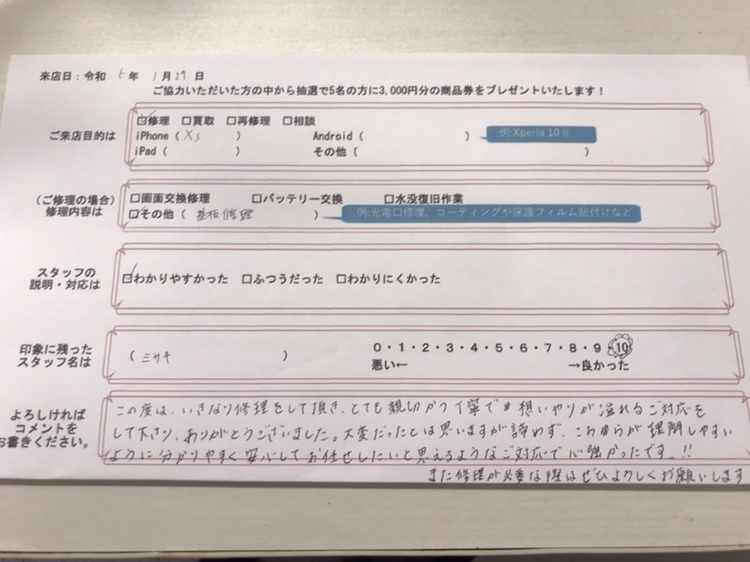 来店日：令和 5年 1月29日
ご協力いただいた方の中から抽選で5名の方に3,000円分の商品券をプレゼントいたします！
ご来店目的は
☑修理 □買取 □再修理 □相談
iPhone（ XS ） Android（ ） 例:Xperia 10 II
iPad（ ） その他（ ）
（ご修理の場合）
修理内容は
□画面交換修理 □バッテリー交換 □水没復旧作業
☑その他（ 基板修理 ） 例:充電口修理、コーティングや保護フィルム貼付けなど
スタッフの
説明・対応は
☑わかりやすかった □ふつうだった □わかりにくかった
印象に残った
スタッフ名は
（ ミサキ ）
0・1・2・3・4・5・6・7・8・9・10
悪い← →良かった
よろしければ
コメントを
お書きください。
この度は、いきなり修理をして頂き、とても親切かつ丁寧で思いやりが溢れるご対応を
して下さり、ありがとうございました。大変だったとは思いますが諦めず、こちらが理解しやすい
ように分かりやすく安心してお任せしたいと思えるようなご対応で心強かったです。!!
また修理が必要な際はぜひよろしくお願いします